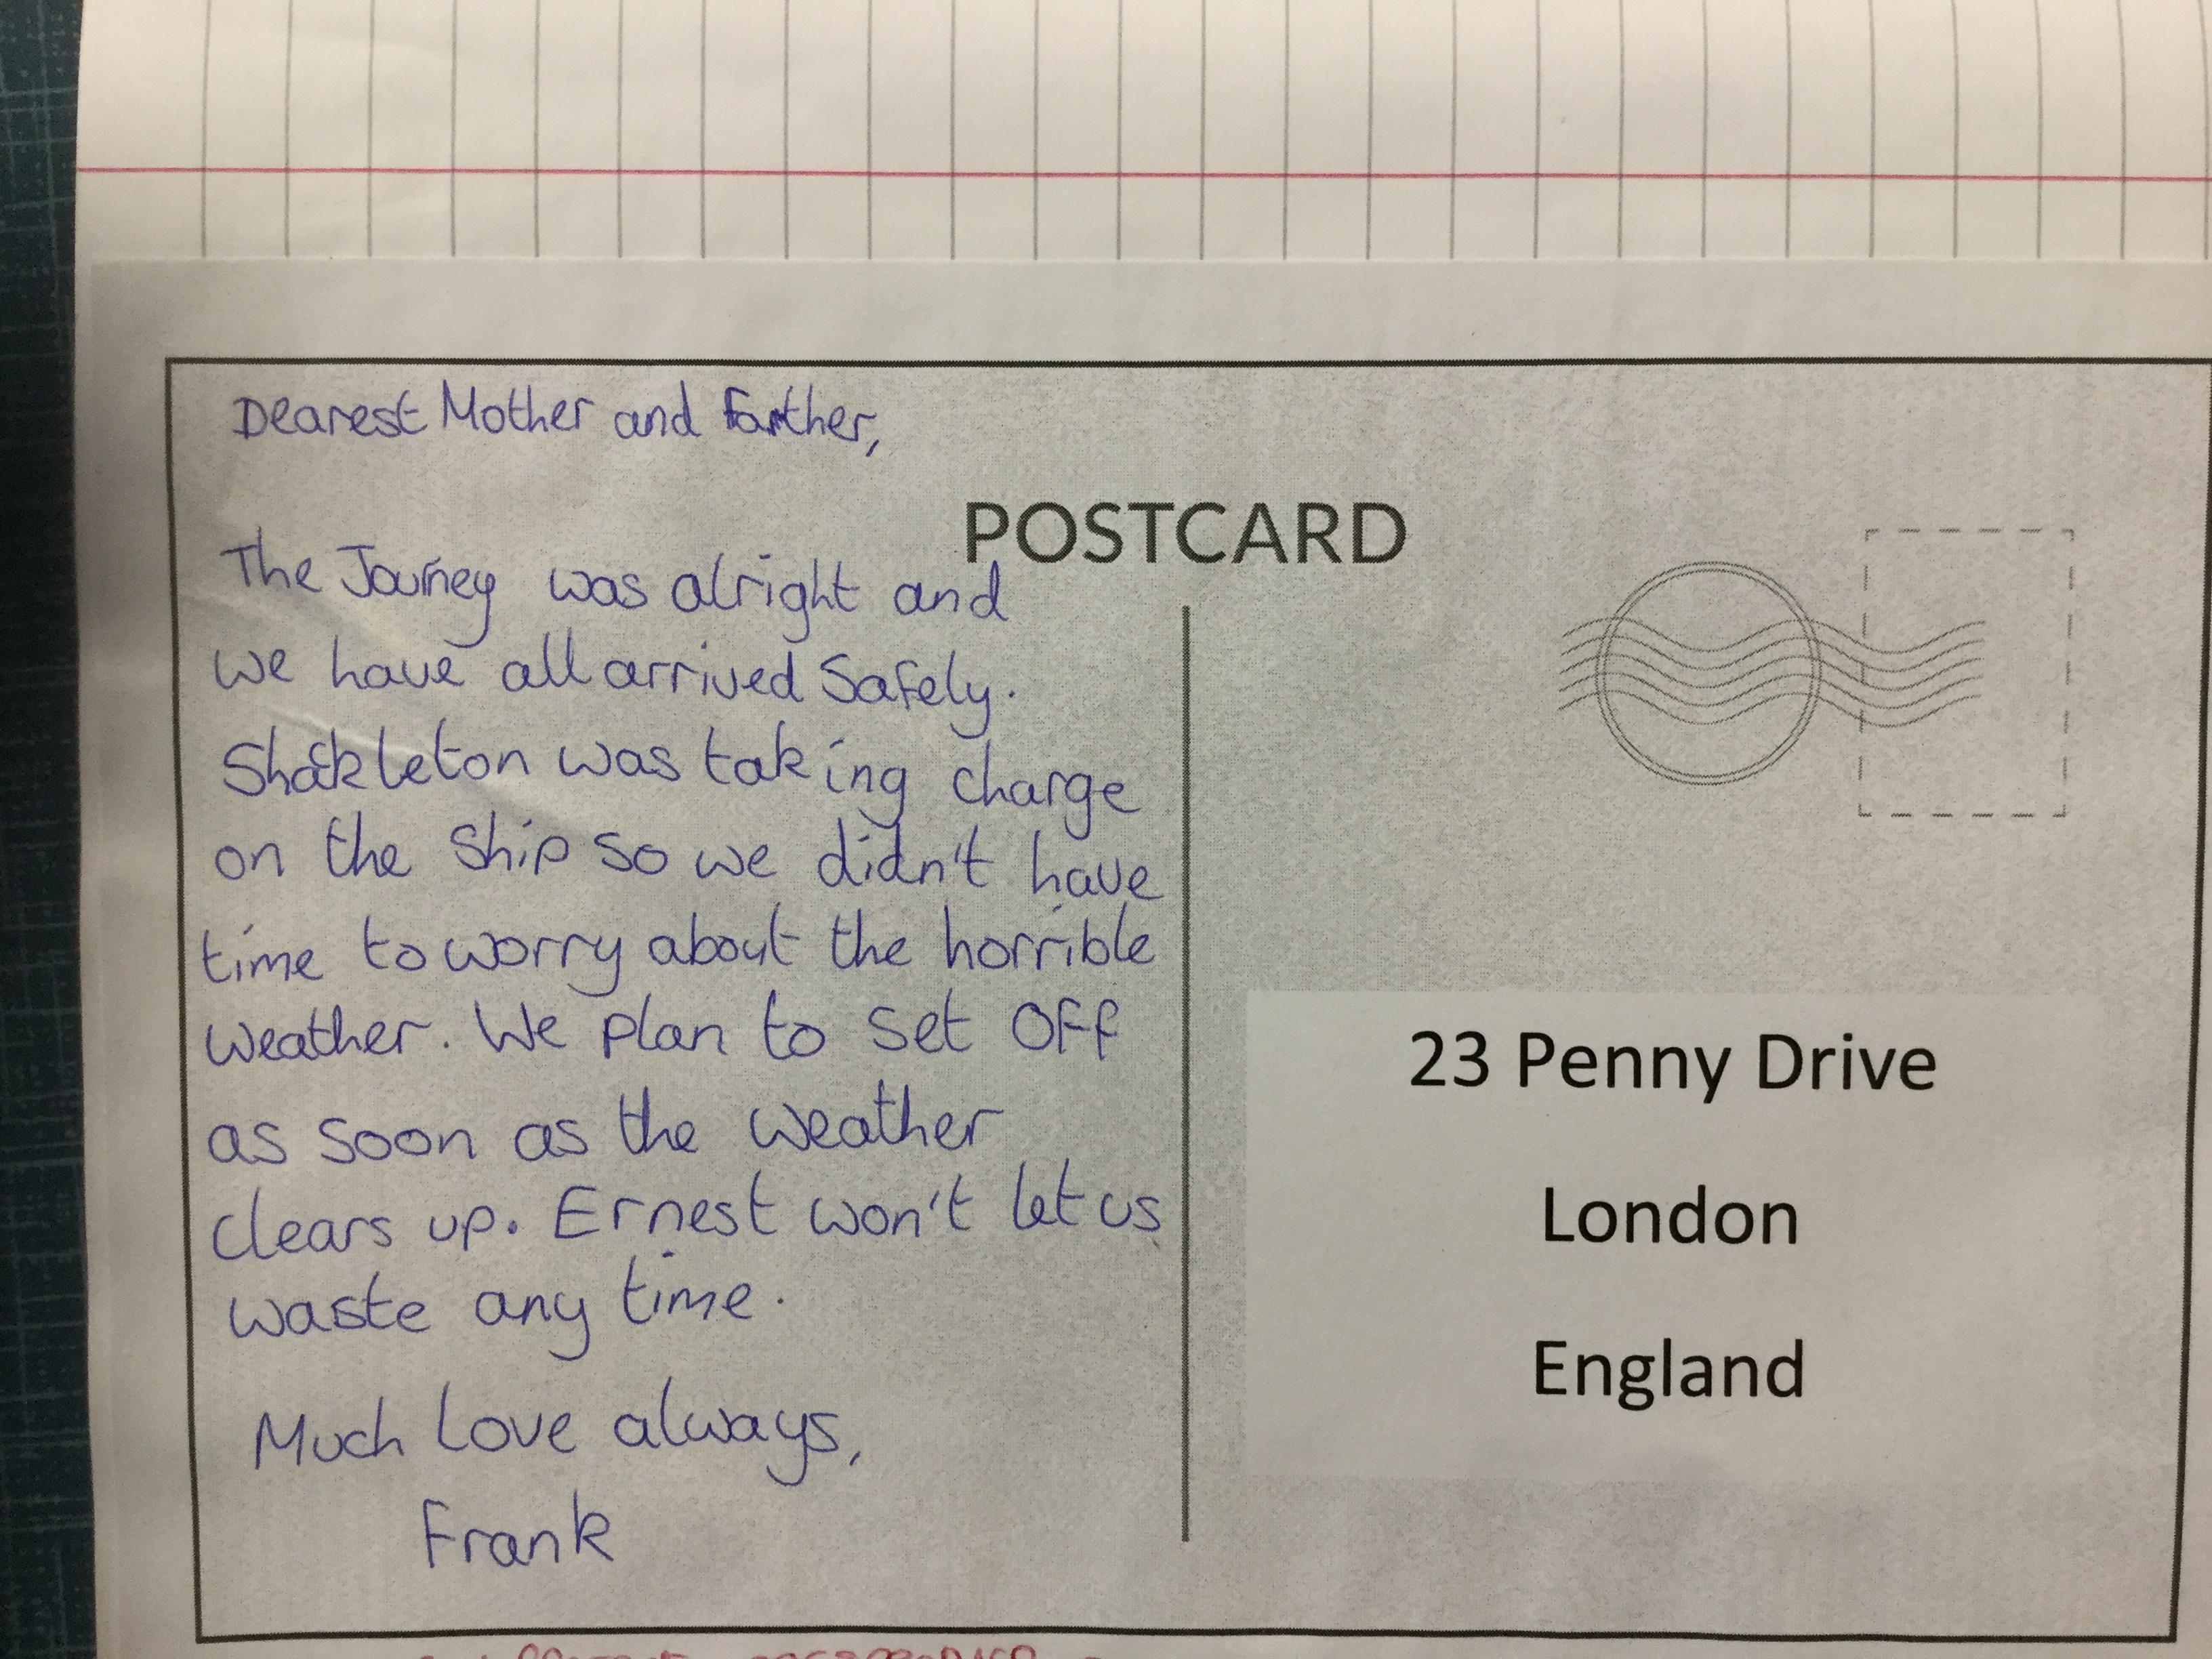 Dearest Mother and Farther,
POSTCARD
The Journey was alright and
we have all arrived safely.
Shackleton was taking charge
on the ship so we didn't have
time to worry about the horrible
weather. We plan to set off
as soon as the weather
clears up. Ernest won't let us
waste any time.
Much love always,
Frank
23 Penny Drive
London
England